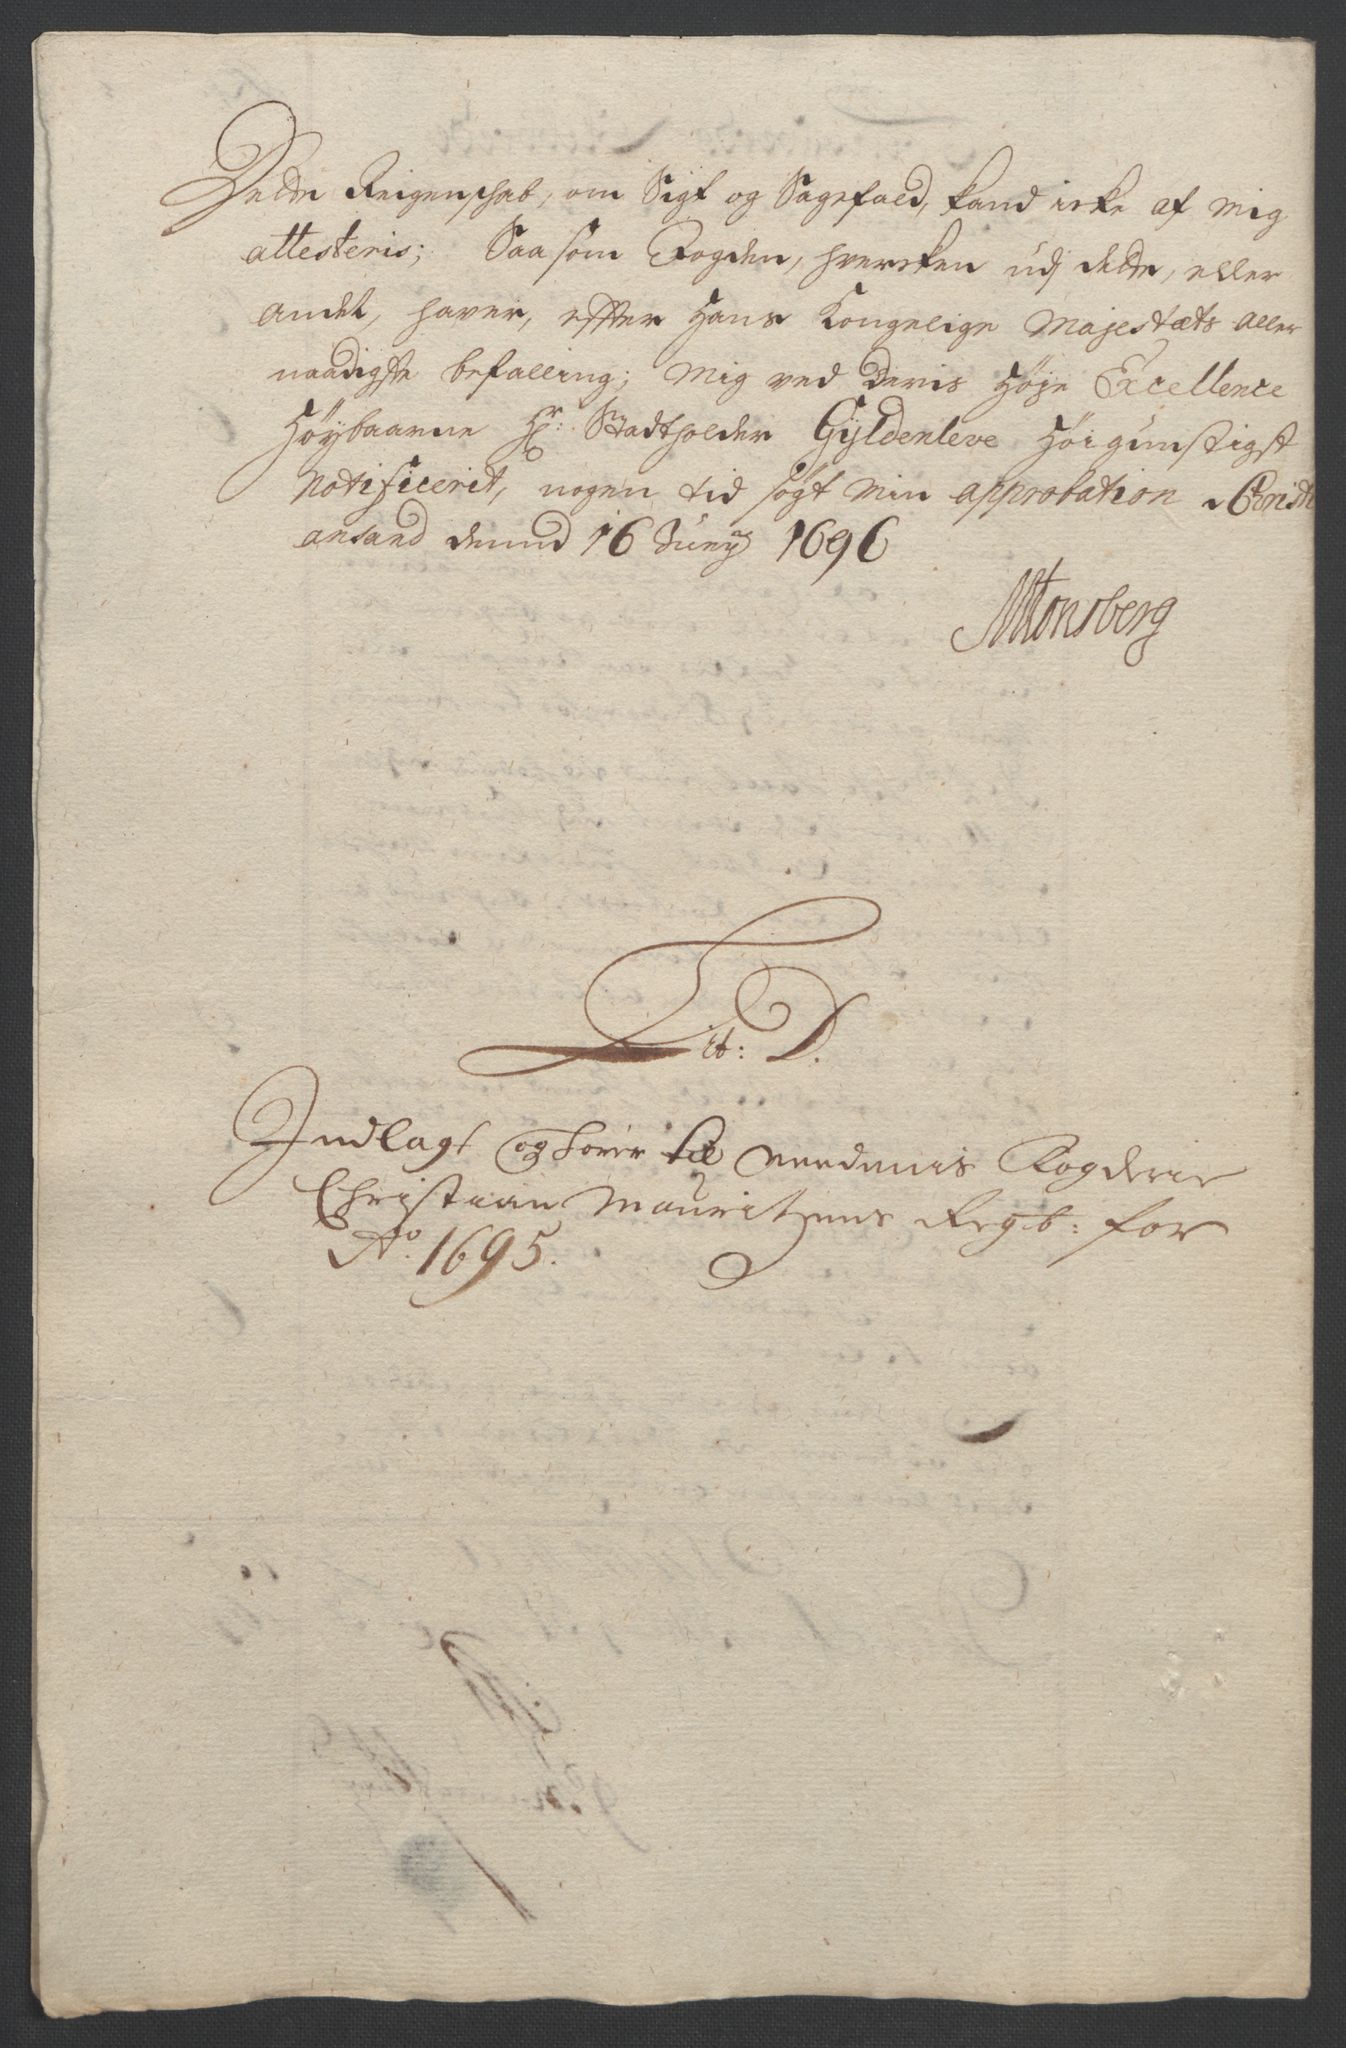 Dette Reigenschab, om Sigt og Sagefald, kand icke af mig
attesteris; Saasom Fogden, hvercken udj dette, eller
andet, haver, effter Hans Kongelige Majestæts aller
naadigste befalling; Mig ved deris Høje Excellence
Höybaarne Hr: Stadtholder Gyldenleve Höigunstigst
Notificerit, nogen tid søgt Min approbation Christi
ansand dennd 16 Junij 1696
Tonsberg
Lit: D.
Indlagt og hører til Nerdenis Fogderie
Christian Mauritzens Regb: for
Ao. 1695.